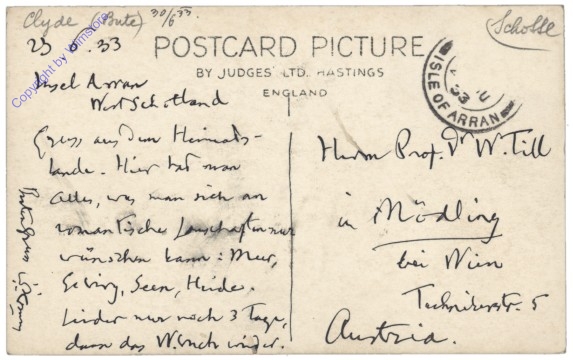 Clyde (Bute) 30/6 33
Schotte
23 6. 33
POSTCARD PICTURE
BY JUDGES' LTD. HASTINGS
ENGLAND
ISLE OF ARRAN
33
Copyright by Wilmstore
Insel Arran
West Schottland
Gruss aus dem Heimats-
lande. Hier hat man
alles, was man sich an
romantischer Landschaft nur
wünschen kann: Meer,
Gebirg, Seen, Heide.
Leider nur noch 3 Tage,
dann das W. wieder.
Herrn Prof. Dr W. Till
in Mödling
bei Wien
Technikerstr. 5
Austria.